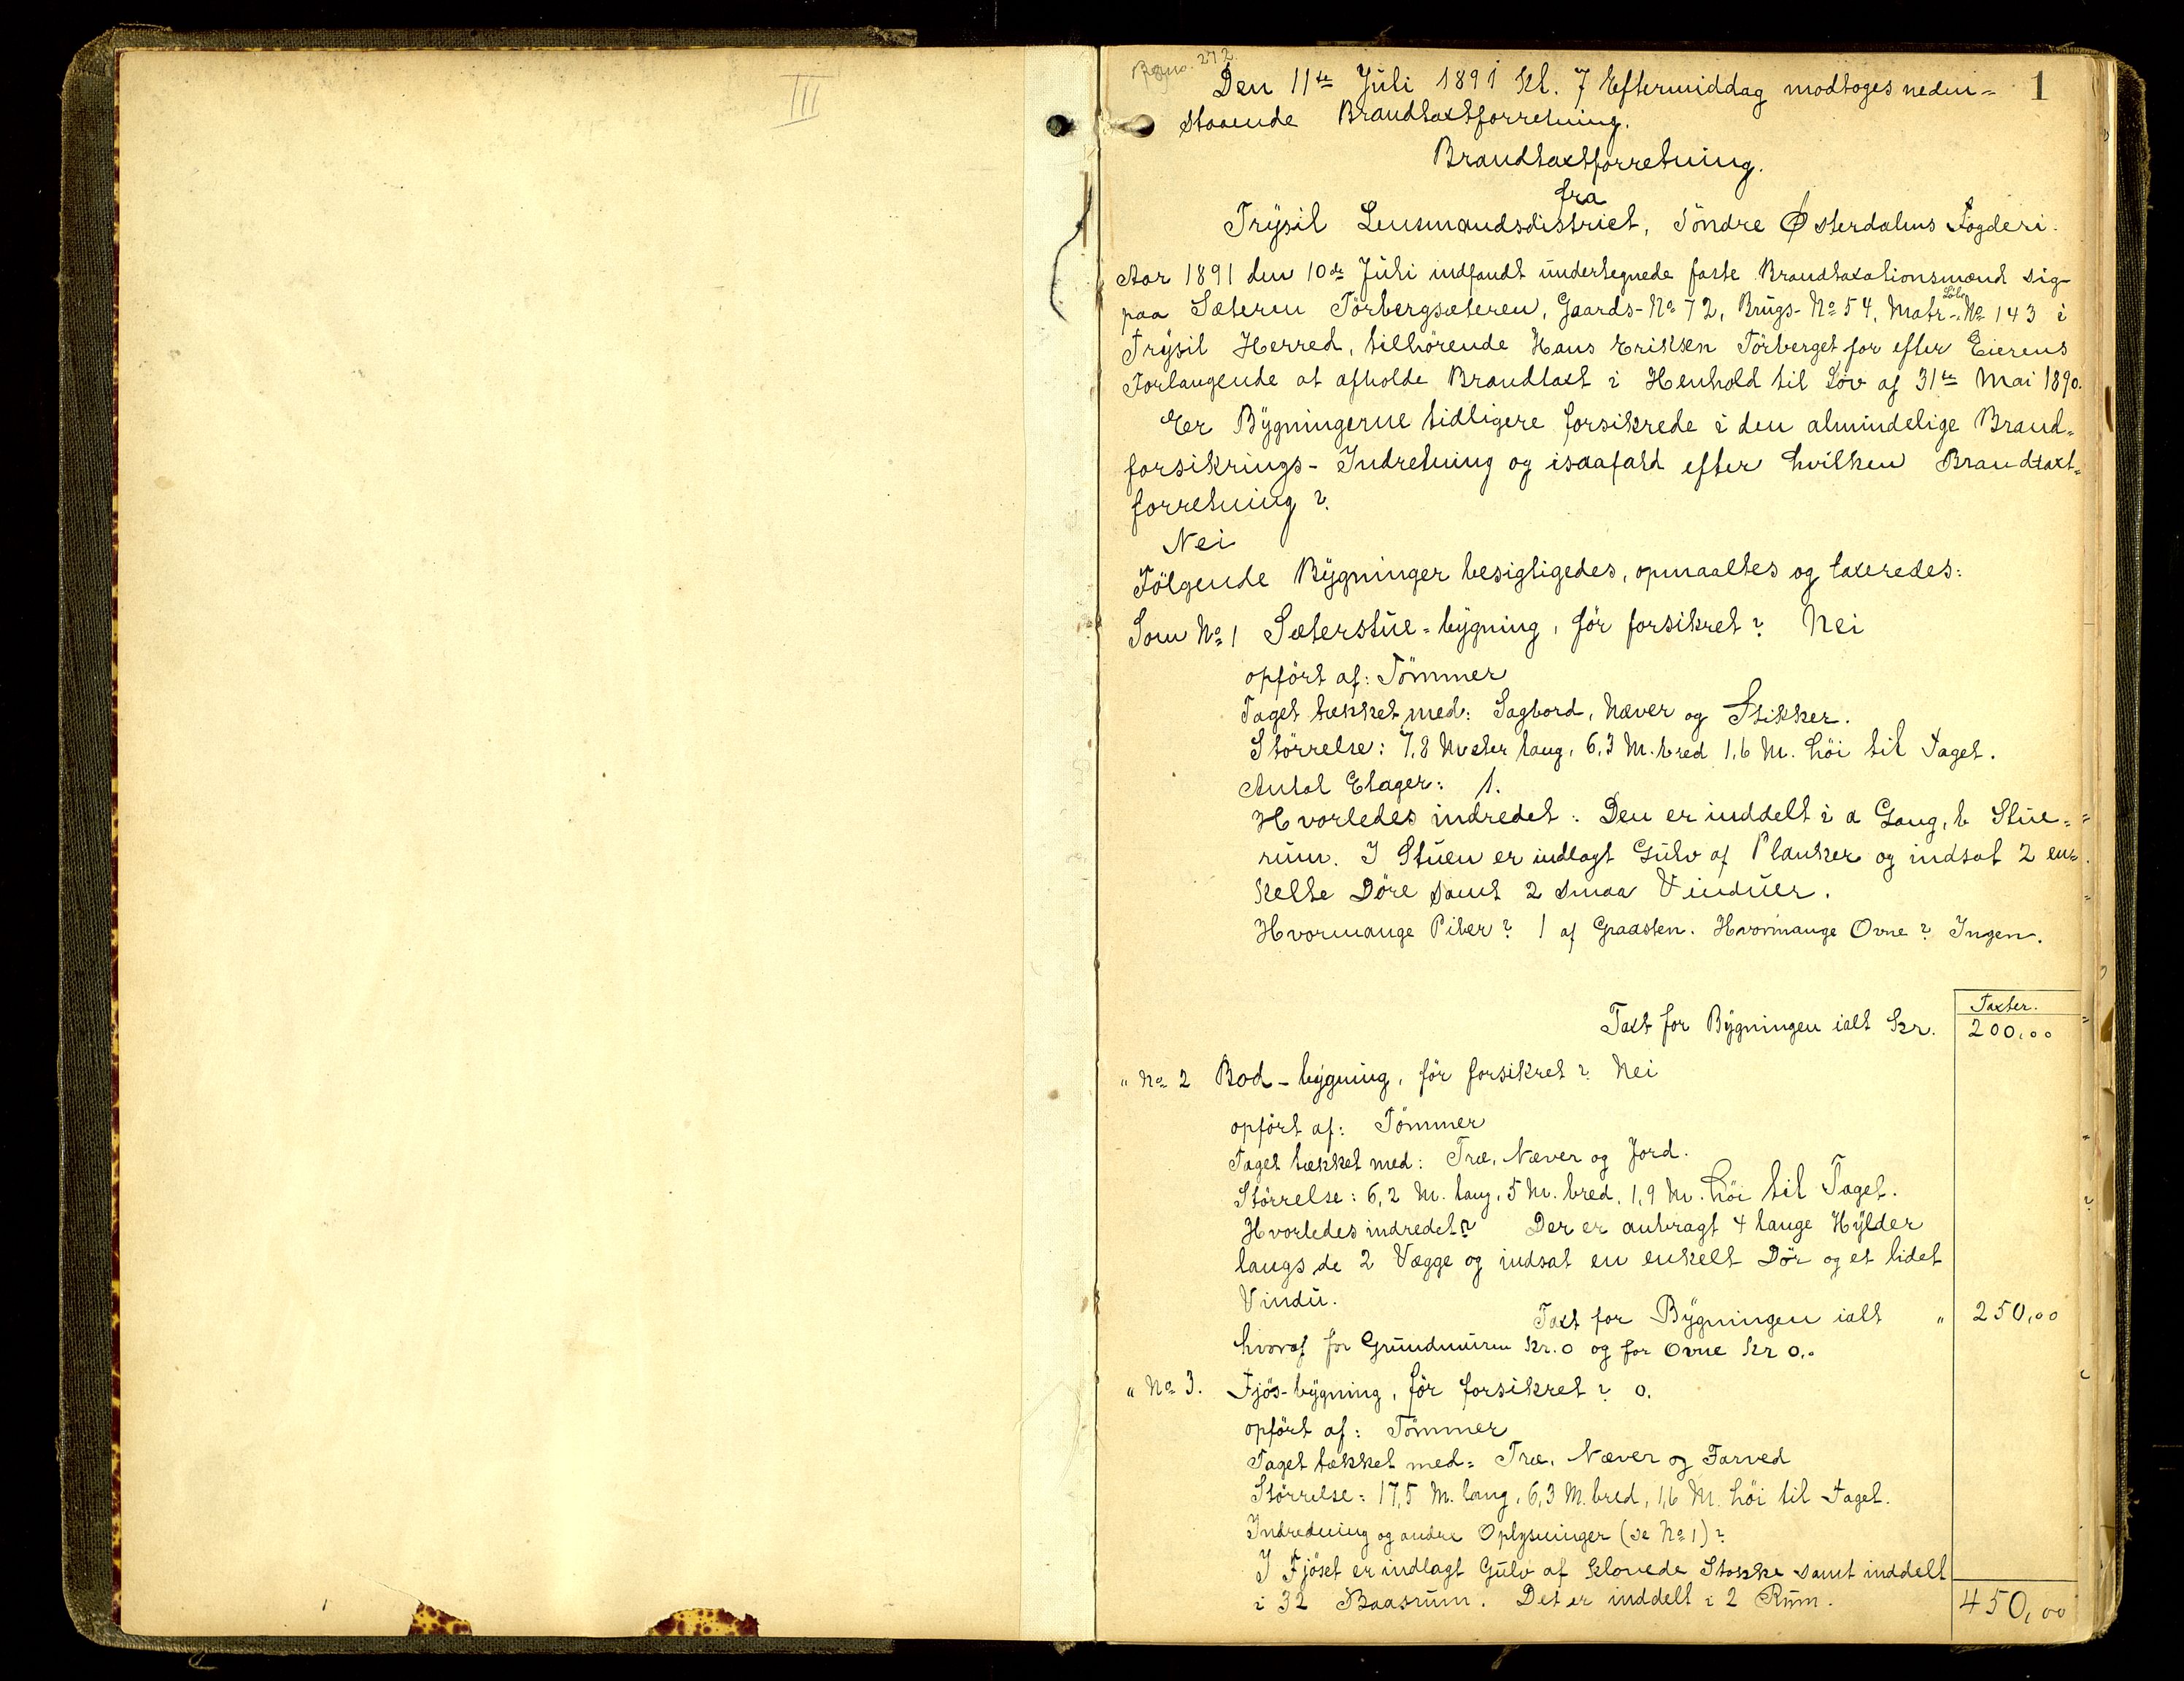 III
Regno. 272.
1
Den 11te Juli 1891 Kl. 7 Eftermiddag modtoges neden-
staaende Brandtaxtforretning.
Brandtaxtforretning.
fra
Trysil Lensmandsdistrict, Söndre Østerdalens Fogderi.
Aar 1891 den 10de Juli indfandt undertegnede faste Brandtaxationsmænd sig
paa Sæteren Törbergsæteren, Gaards-No 72, Brugs-No 54, Matr.-Löbe No 143 i
Trysil Herred, tilhörende Hans Eriksen Törberget for efter Eierens
Forlangende at afholde Brandtaxt i Henhold til Lov af 31te Mai 1890.
Er Bygningerne tidligere forsikrede i den almindelige Brand-
forsikrings-Indretning og isaafald efter hvilken Brandtaxt-
forretning?
Nei
Fölgende Bygninger besigtigedes, opmaaltes og taxeredes:
Som No 1 Sæterstue-bygning, för forsikret? Nei
opfört af: Tömmer
Taget tækket med: Sagbord, Næver og Stikker.
Störrelse: 7,8 Meter lang, 6,3 M. bred 1,6 M. höi til Taget.
Antal Etager: 1.
Hvorledes indredet: Den er inddelt i a Gang, b Stue-
rum. I Stuen er indlagt Gulv af Planker og indsat 2 en-
kelte Döre samt 2 smaa Vinduer.
Hvormange Piber? 1 af Graasten. Hvormange Ovne? Ingen.
Taxter.
Taxt for Bygningen ialt Kr. 200,00
" No 2 Bod-bygning, för forsikret? Nei
opfört af: Tömmer
Taget tækket med: Træ, Næver og Jord.
Störrelse: 6,2 M. lang, 5 M. bred, 1,9 M. höi til Taget.
Hvorledes indredet? Der er anbragt 4 lange Hylder
langs de 2 Vægge og indsat en enkelt Dör og et lidet
Vindu.
Taxt for Bygningen ialt " 250,00
hvoraf for Grundmuren Kr. 0 og for Ovne Kr 0,.
" No 3. Fjös-bygning, för forsikret? 0.
opfört af: Tömmer
Taget tækket med: Træ, Næver og Farved
Störrelse: 17,5 M. lang, 6,3 M. bred, 1,6 M. höi til Taget.
Indredning og andre Oplysninger (se No 1)?
I Fjöset er indlagt Gulv af klovede Stokke samt inddelt
i 32 Baasrum. Det er inddelt i 2 Rum.
450,00